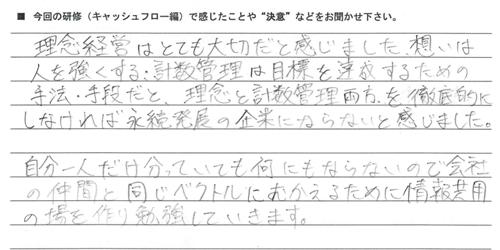 ■ 今回の研修（キャッシュフロー編）で感じたことや“決意”などをお聞かせ下さい。
理念経営はとても大切だと感じました、想いは
人を強くする・計数管理は目標を達成するための
手法・手段だと、理念と計数管理両方を徹底的に
しなければ永続発展の企業にならないと感じました。
自分一人だけ分っていても何にもならないので会社
の仲間と同じベクトルにむかえるために情報共用
の場を作り勉強していきます。